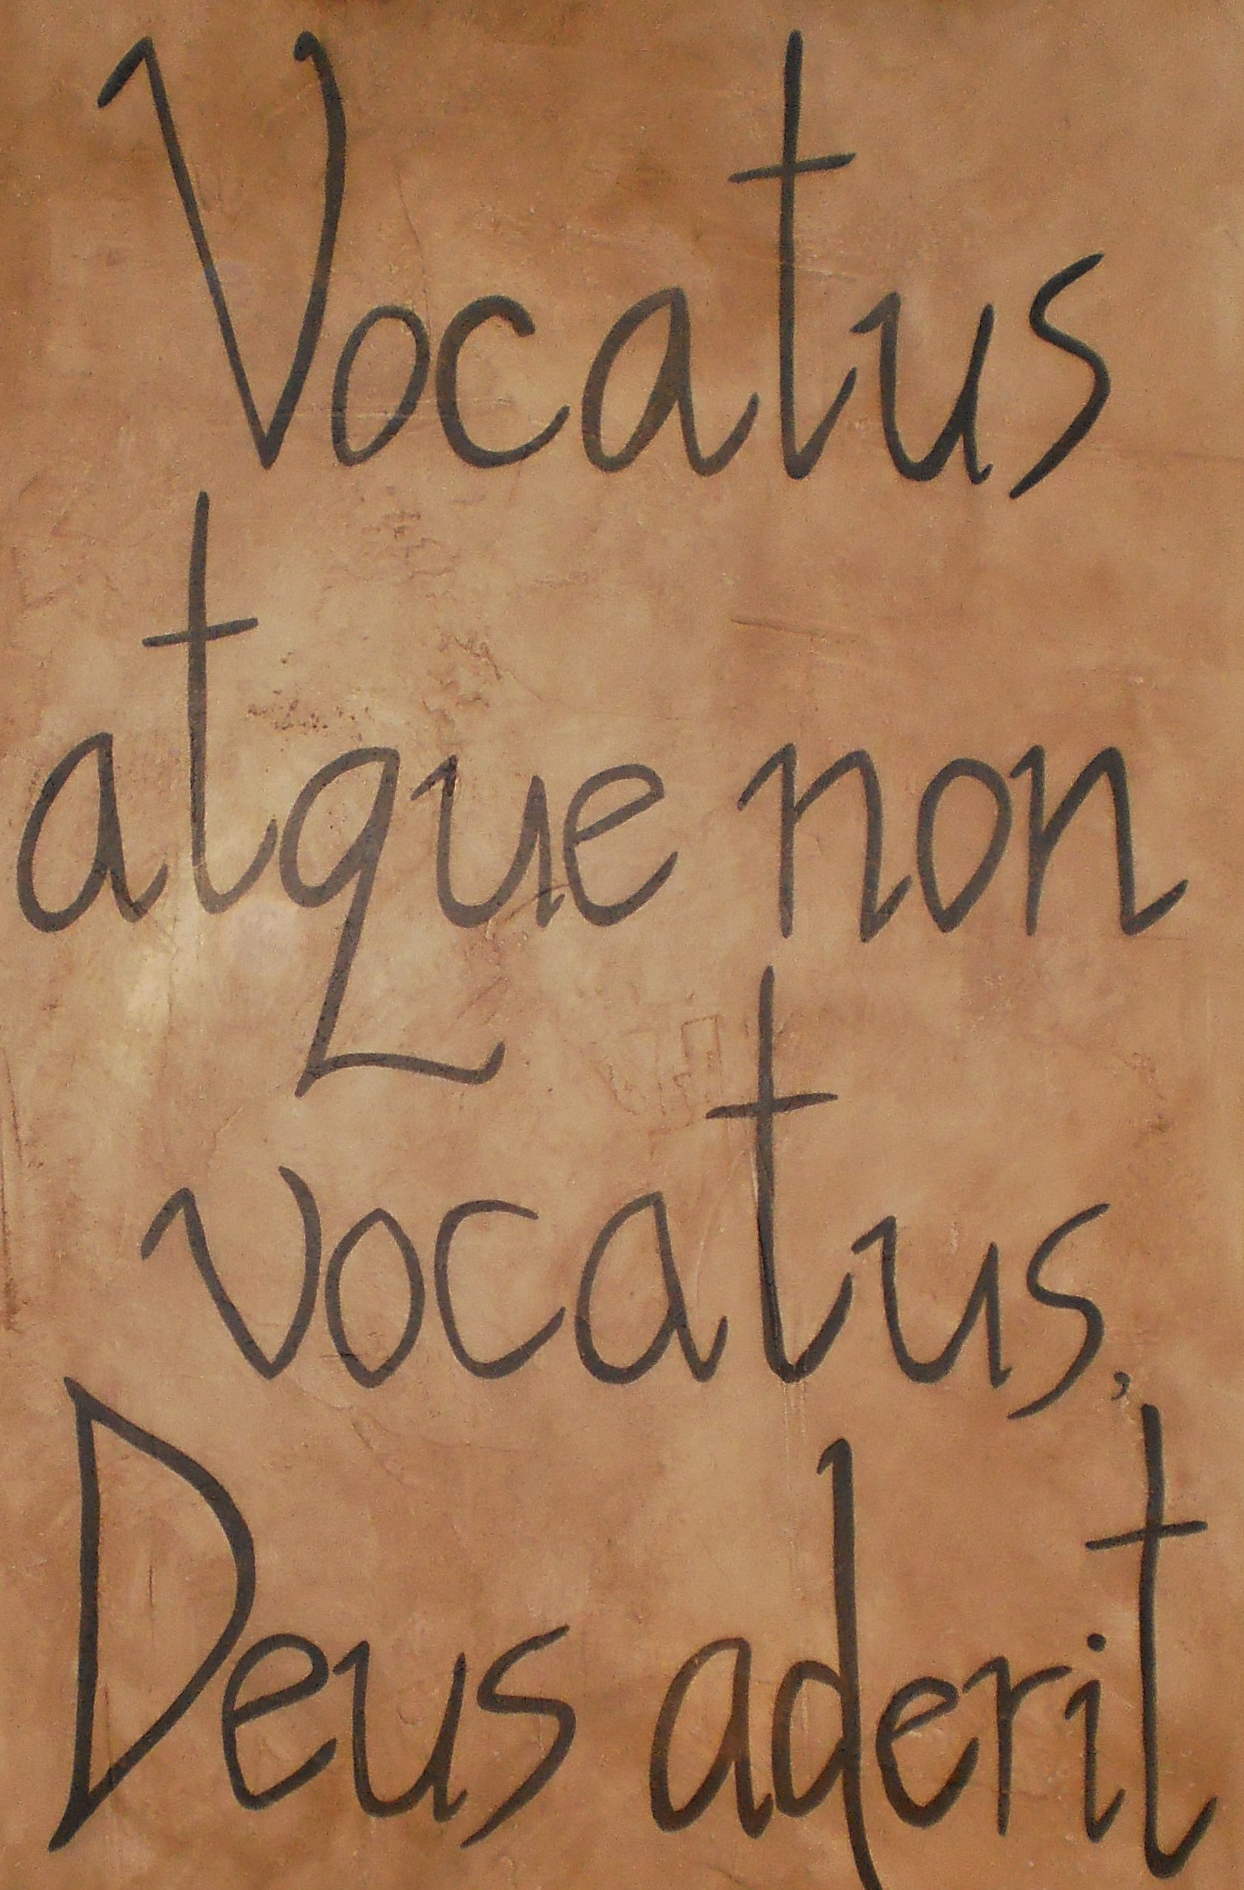 Vocatus
atque non
vocatus,
Deus aderit